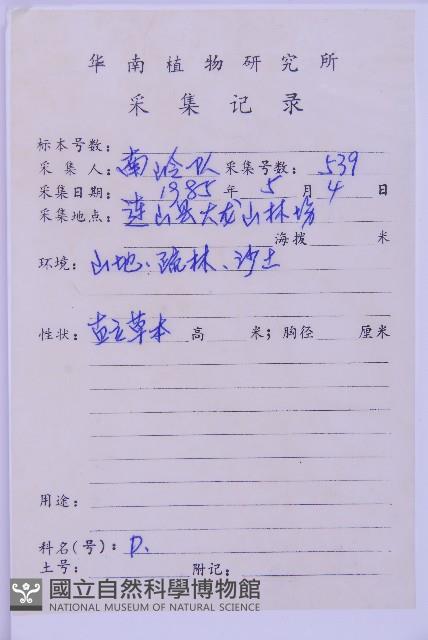 华南植物研究所
采集记录
标本号数：
采集人：南岭队 采集号数：539
采集日期：1985年5月4日
采集地点：连山县大龙山林场
海拨 米
环境：山地、疏林、沙土
性状：直立草本 高 米；胸径 厘米
用途：
科名(号)：P.
土号： 附记：
國立自然科學博物館
NATIONAL MUSEUM OF NATURAL SCIENCE